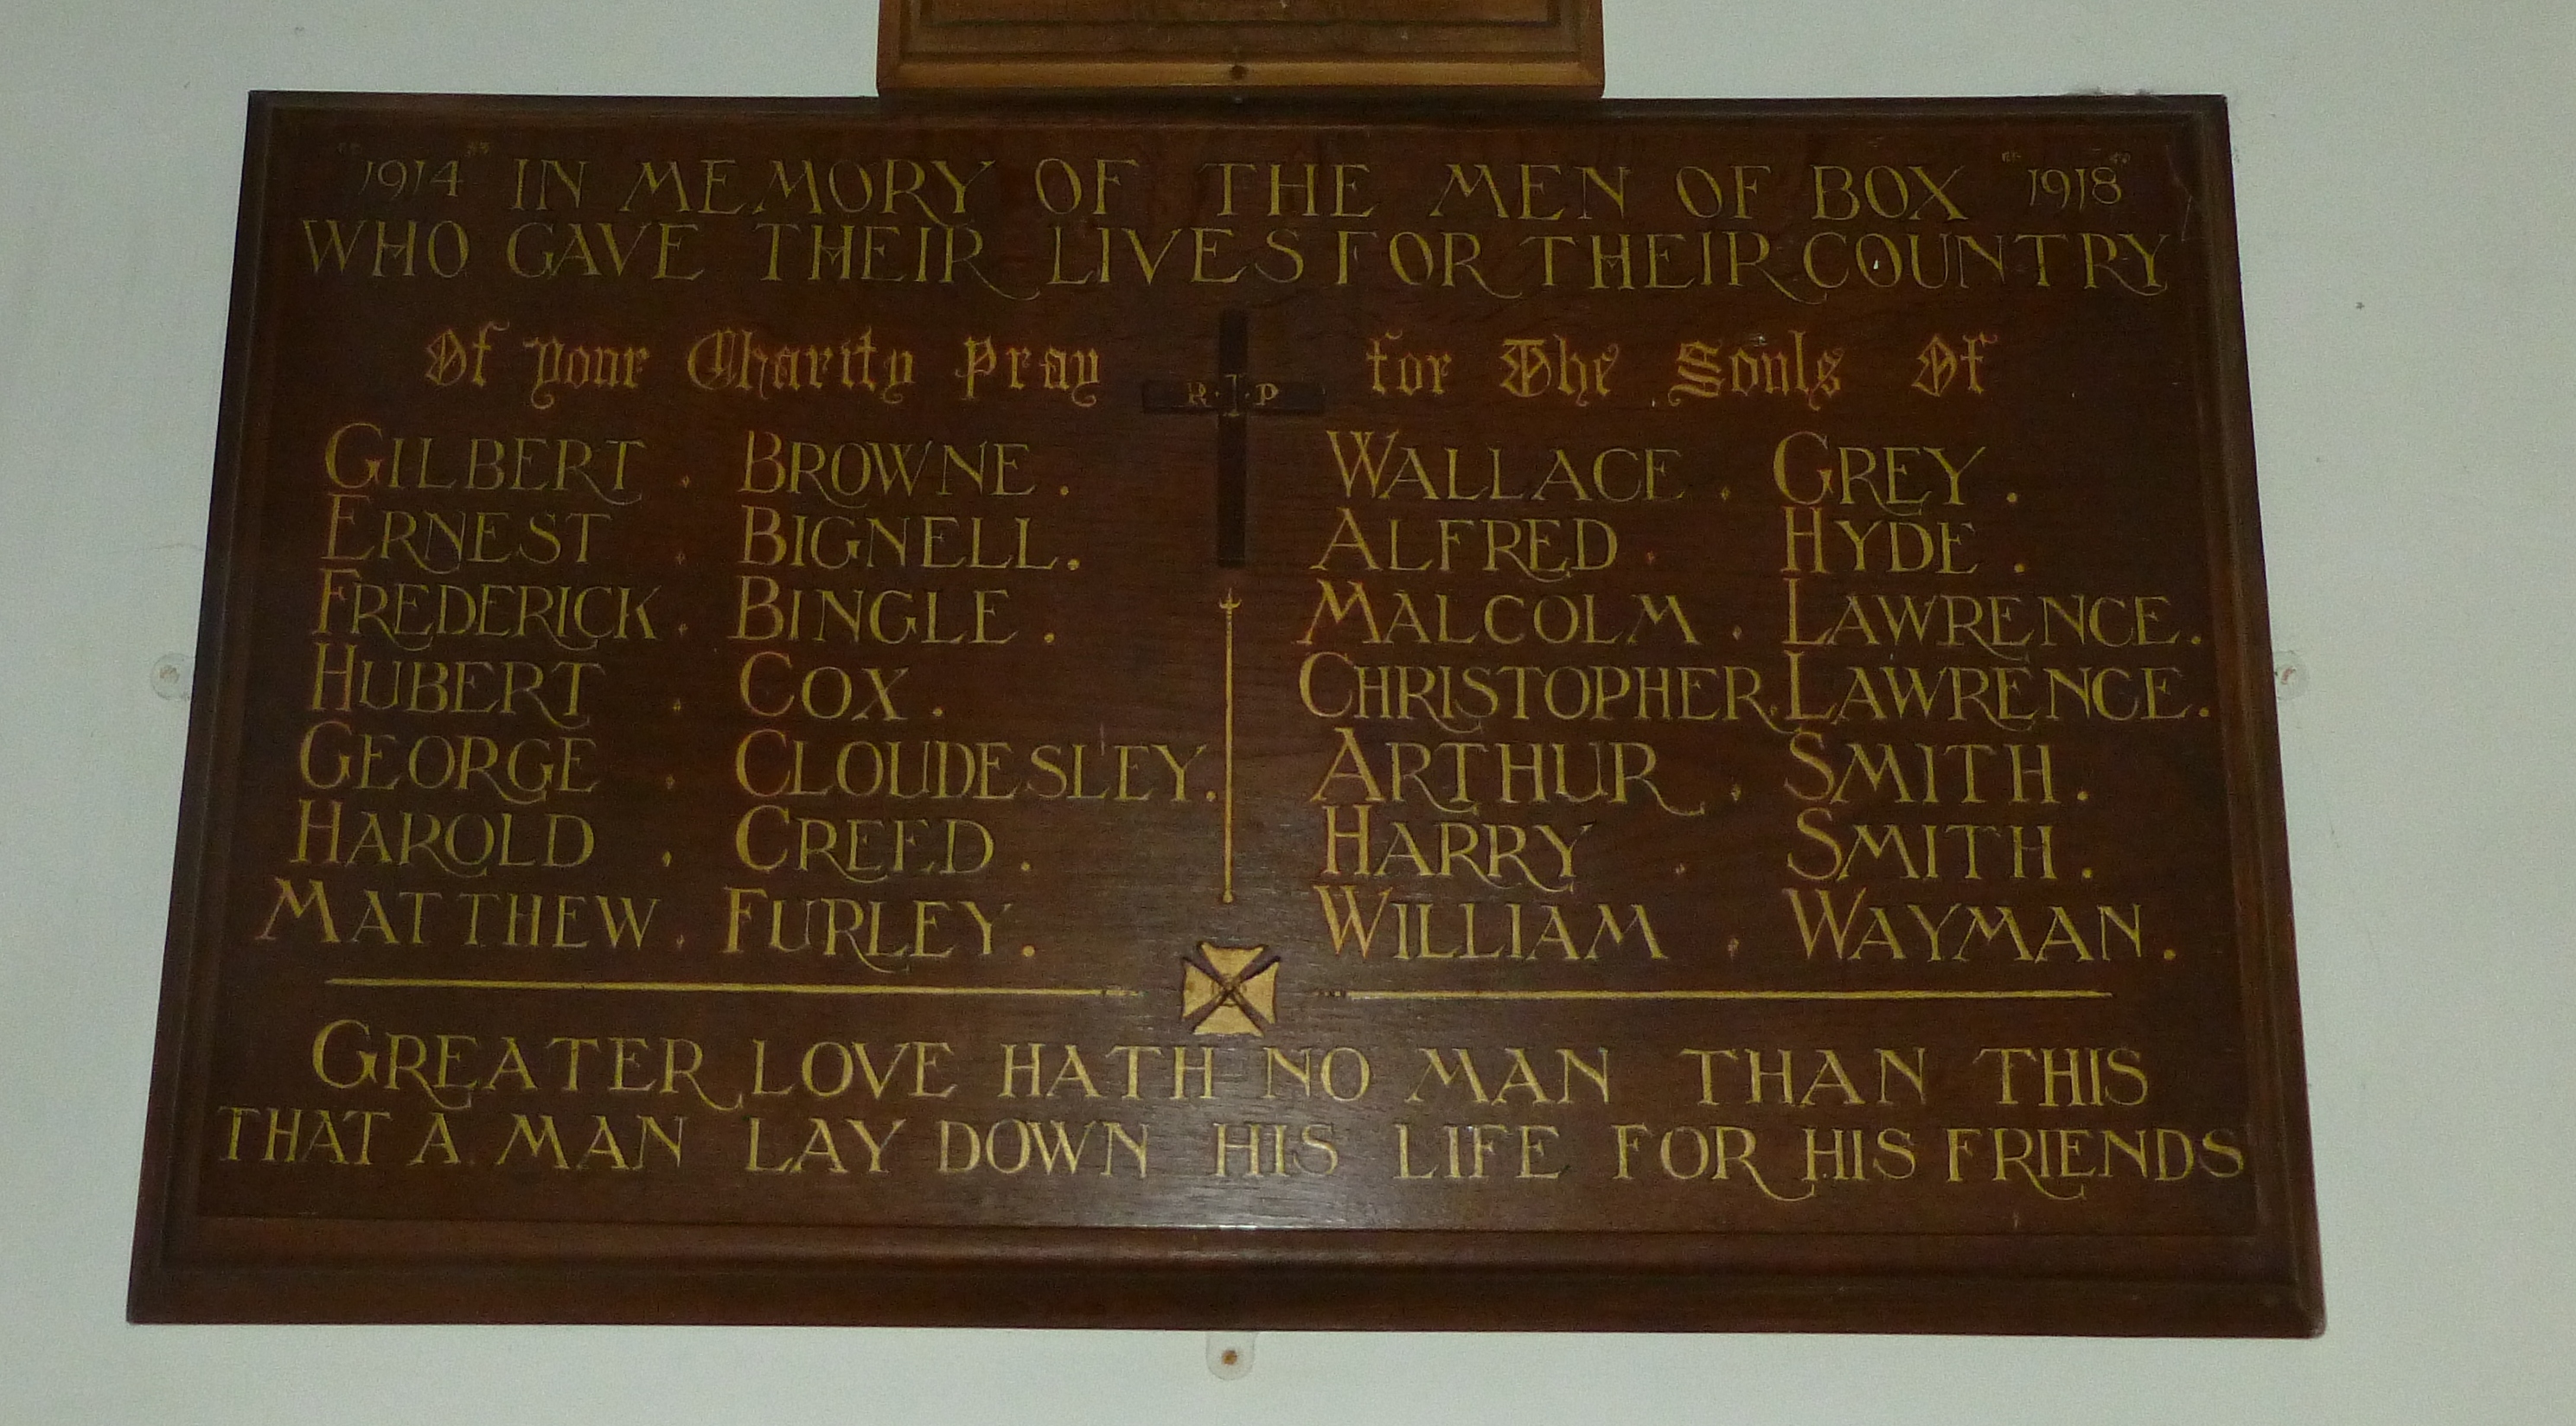 "1914" IN MEMORY OF THE MEN OF BOX "1918"
WHO GAVE THEIR LIVES FOR THEIR COUNTRY
Of your Charity Pray for The Souls Of
R·I·P
GILBERT . BROWNE .
ERNEST . BIGNELL .
FREDERICK . BINGLE .
HUBERT . COX .
GEORGE . CLOUDESLEY .
HAROLD . CREED .
MATTHEW . FURLEY .
WALLACE . GREY .
ALFRED . HYDE .
MALCOLM . LAWRENCE .
CHRISTOPHER . LAWRENCE .
ARTHUR . SMITH .
HARRY . SMITH .
WILLIAM . WAYMAN .
GREATER LOVE HATH NO MAN THAN THIS
THAT A MAN LAY DOWN HIS LIFE FOR HIS FRIENDS